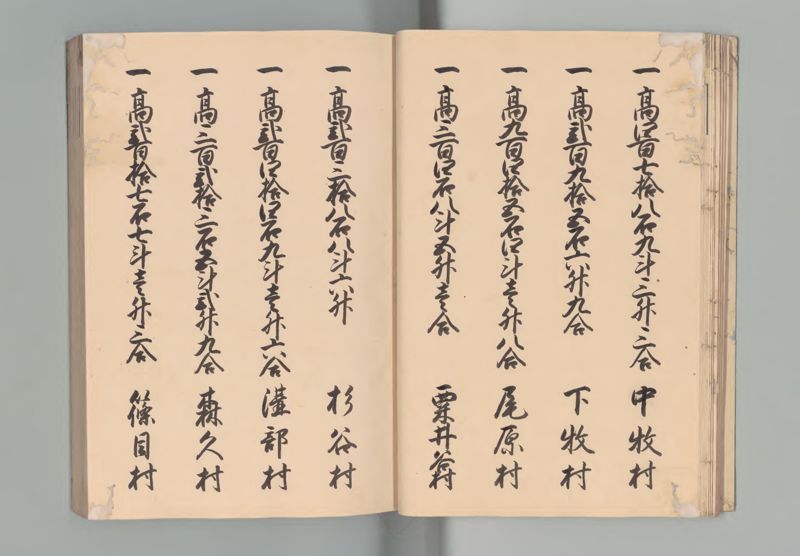 一 高四百七拾八石九斗三升三合 中牧村
一 高弐百九拾五石六升九合 下牧村
一 高九百四拾五石四斗壱升八合 尾原村
一 高三百四石八斗五升壱合 粟井谷村
一 高弐百三拾八石八斗六升 杉谷村
一 高弐百四拾四石九斗壱升六合 溝部村
一 高三百弐拾三石五斗弐升九合 森久村
一 高弐百拾七石七斗壱升三合 篠目村